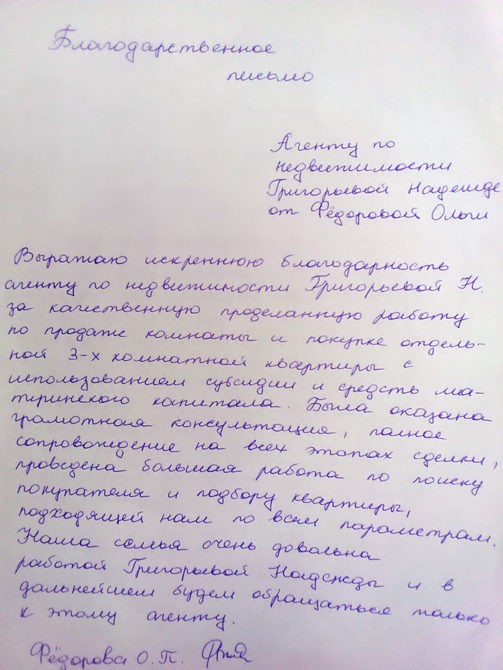 Благодарственное
письмо
Агенту по
недвижимости
Григорьевой Надежде
от Фёдоровой Ольги
Выражаю искреннюю благодарность
агенту по недвижимости Григорьевой Н.
за качественную проделанную работу
по продаже комнаты и покупке отдель-
ной 3-х комнатной квартиры с
использованием субсидии и средств ма-
теринского капитала. Была оказана
грамотная консультация, полное
сопровождение на всех этапах сделки,
проведена большая работа по поиску
покупателя и подбору квартиры,
подходящей нам по всем параметрам.
Наша семья очень довольна
работой Григорьевой Надежды и в
дальнейшем будем обращаться только
к этому агенту.
Фёдорова О.П.